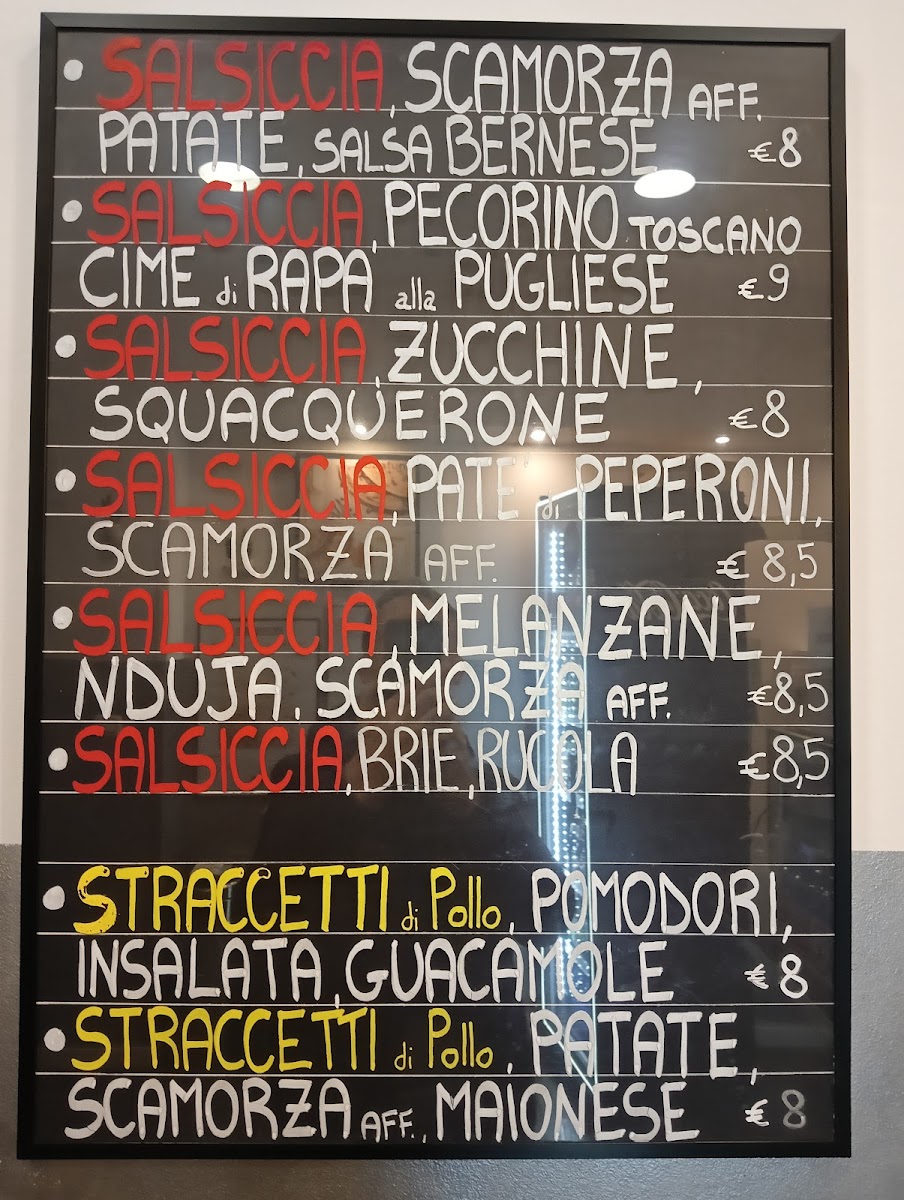 SALSICCIA, SCAMORZA AFF.
PATATE, SALSA BERNESE €8
SALSICCIA, PECORINO TOSCANO
CIME di RAPA alla PUGLIESE €9
SALSICCIA, ZUCCHINE,
SQUACQUERONE €8
SALSICCIA, PATE' di PEPERONI,
SCAMORZA AFF. €8,5
SALSICCIA, MELANZANE,
NDUJA, SCAMORZA AFF. €8,5
SALSICCIA, BRIE, RUCOLA €8,5
STRACCETTI di Pollo, POMODORI,
INSALATA, GUACAMOLE €8
STRACCETTI di Pollo, PATATE,
SCAMORZA AFF., MAIONESE €8